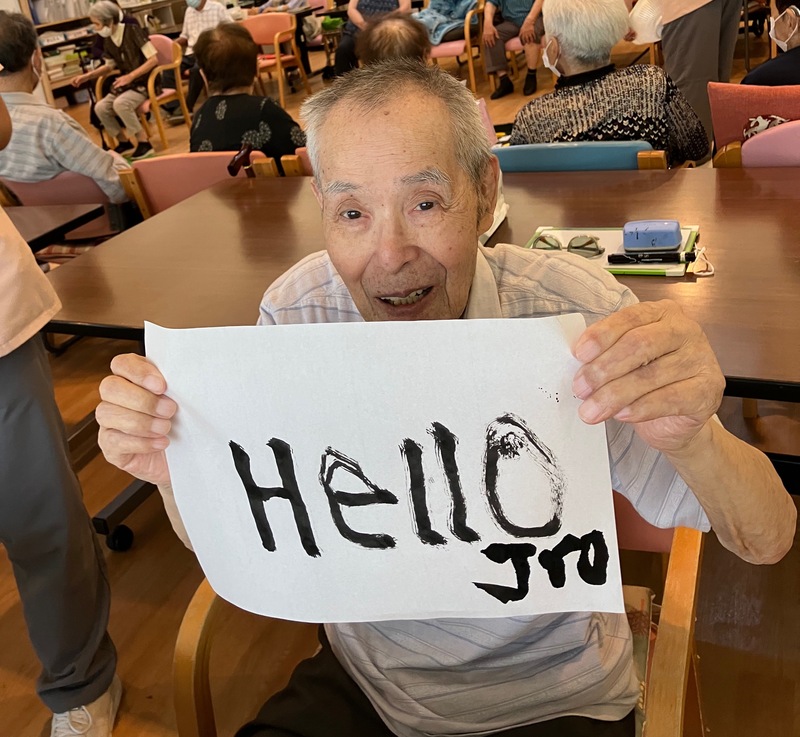 Hello
Jro